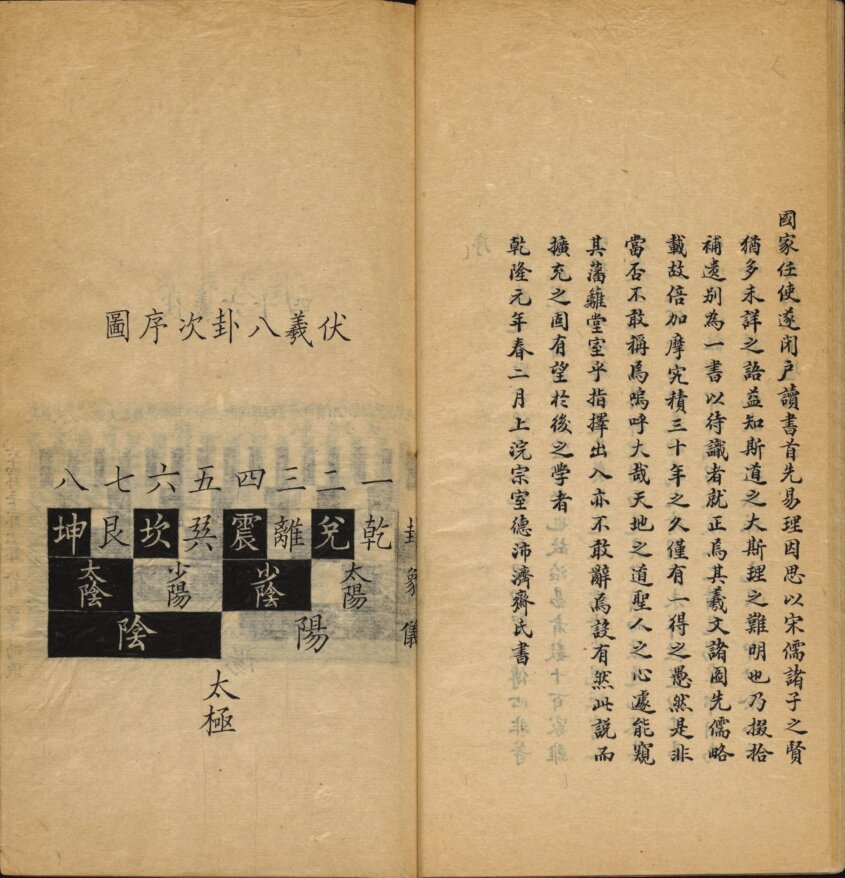 國家任使遂閉户讀書首先易理因思以宋儒諸子之賢
猶多未詳之語益知斯道之大斯理之難明也乃掇拾
補遺别為一書以待識者就正焉其羲文諸圖先儒略
載故倍加摩究積三十年之久僅有一得之愚然是非
當否不敢稱焉嗚呼大哉天地之道聖人之心遽能窺
其藩籬堂室乎指擇出入亦不敢辭焉設有然此説而
擴充之固有望於後之學者
乾隆元年春二月上浣宗室德沛濟齋氏書
伏羲八卦次序圖
一二三四五六七八
乾兌離震巽坎艮坤
太陽少陰少陽太陰
陽陰
卦象儀
太極